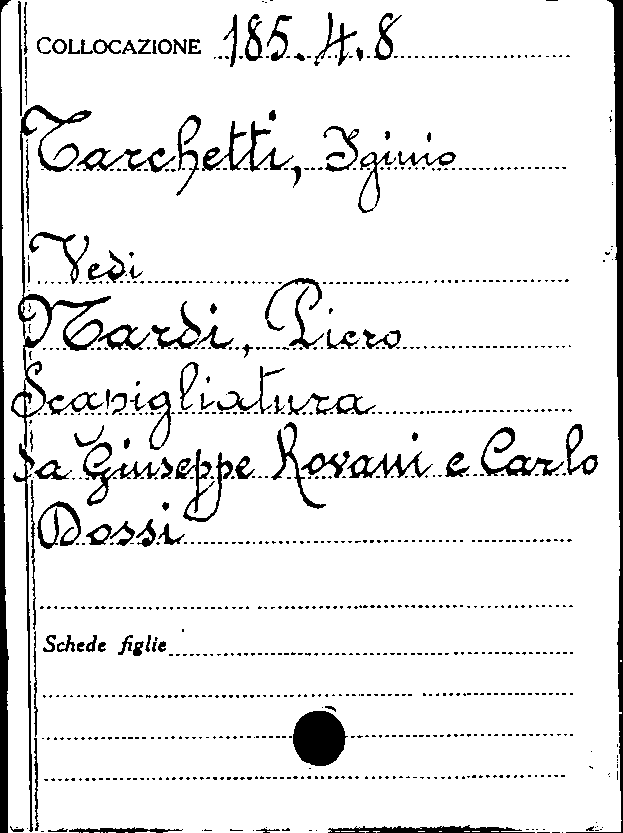 COLLOCAZIONE 185.4.8
Tarchetti, Iginio
Vedi
Nardi, Piero
Scapigliatura
da Giuseppe Rovani e Carlo
Dossi
Schede figlie